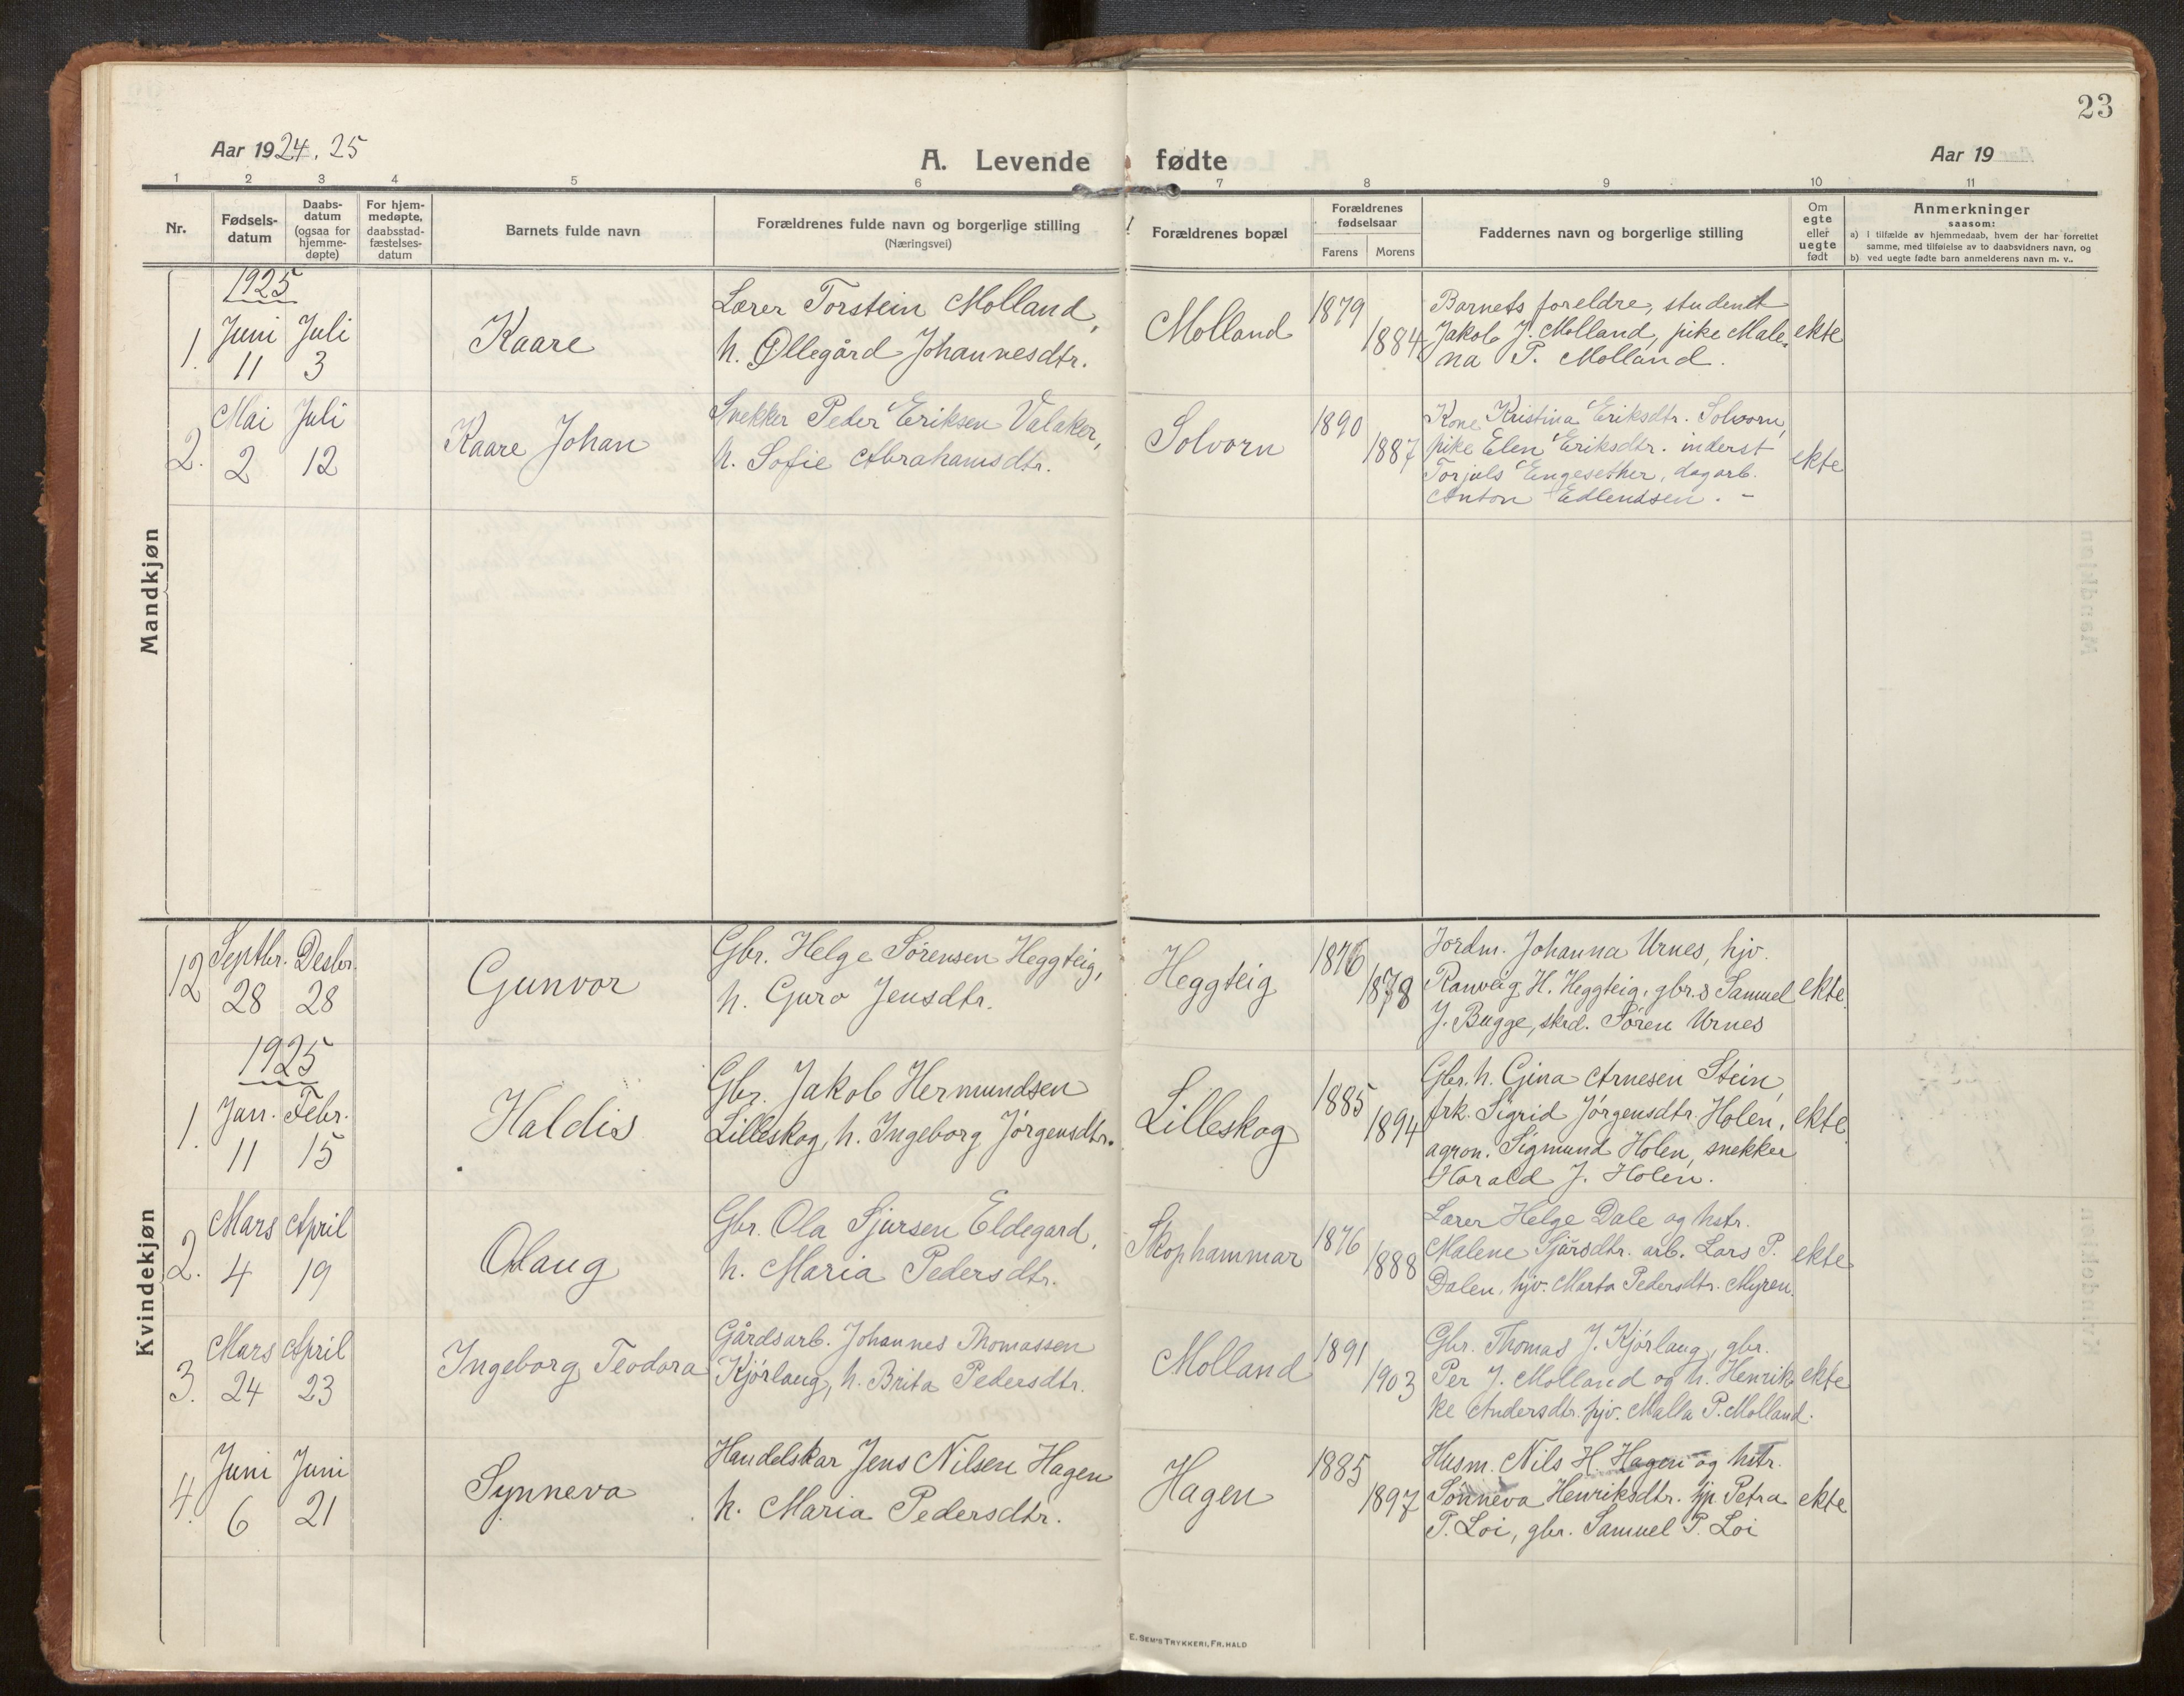 23
Aar 1924. 25
A. Levende fødte
Aar 19
1 2 3 4 5 6 7 8 9 10 11
Nr.
Fødsels-
datum
Daabs-
datum
(ogsaa for
hjemme-
døpte)
For hjem-
medøpte,
daabsstad-
fæstelses-
datum
Barnets fulde navn
Forældrenes fulde navn og borgerlige stilling
(Næringsvei)
Forældrenes bopæl
Forældrenes
fødselsaar
Farens Morens
Faddernes navn og borgerlige stilling
Om
egte
eller
uegte
født
Anmerkninger
saasom:
a) i tilfælde av hjemmedaab, hvem der har forrettet
samme, med tilføielse av to daabsvidners navn, og
b) ved uegte fødte barn anmelderens navn m. v..
Mandkjøn
1925
1.
Juni Juli
11 3
Kaare
Lærer Torstein Molland,
h. Øllegård Johannesdtr.
Molland
1879
1884
Barnets foreldre, student
Jakob J. Molland, pike Male-
na P. Molland.
ekte
2.
Mai Juli
2 12
Kaare Johan
Snekker Peder Eriksen Valaker,
h. Sofie Abrahamsdtr.
Solvorn
1890
1887
Kone Kristina Eriksdtr. Solvorn,
pike Elen Eriksdtr. inderst
Torjuls Engesether, dagarb.
Anton Edlendsen. -
ekte
Kvindekjøn
12
Septbr. Desbr.
28 28
Gunvor
Gbr. Helge Sørensen Heggteig,
h. Guro Jensdtr.
Heggteig
1876
1878
Jordm. Johanna Urnes, hjv.
Ranveig H. Heggteig, gbr.s Samuel
J. Bugge, skrd. Søren Urnes
ekte
1925
1.
Jan. Febr.
11 15
Haldis
Gbr. Jakob Hermundsen
Lilleskog, h. Ingeborg Jørgensdtr.
Lilleskog
1885
1894
Gbr. h. Gina Arnesen Stein,
frk. Sigrid Jørgensdtr. Holen,
agron. Sigmund Holen, snekker
Harald J. Holen.
ekte
2.
Mars April
4 19
Olaug
Gbr. Ola Sjursen Eldegard,
h. Maria Pedersdtr.
Skophammar
1876
1888
Lærer Helge Dale og hstr.
Malene Sjursdtr. arb. Lars P.
Dalen, hjv. Marta Pedersdtr. Myren.
ekte
3.
Mars April
24 23
Ingeborg Teodora
Gårdsarb. Johannes Thomassen
Kjørlaug, h. Brita Pedersdtr.
Molland
1891
1903
Gbr. Thomas J. Kjørlaug, gbr.
Per J. Molland og h. Henrik-
ke Andersdtr. hjv. Malla P. Molland.
ekte
4.
Juni Juni
6 21
Synneva
Handelskar Jens Nilsen Hagen
h. Maria Pedersdtr.
Hagen
1885
1897
Husm. Nils H. Hagen og hstr.
Sønneva Henriksdtr. hjv. Petra
P. Loi, gbr. Samuel P. Loi
ekte
E. Sem's Trykkeri, Fr.hald